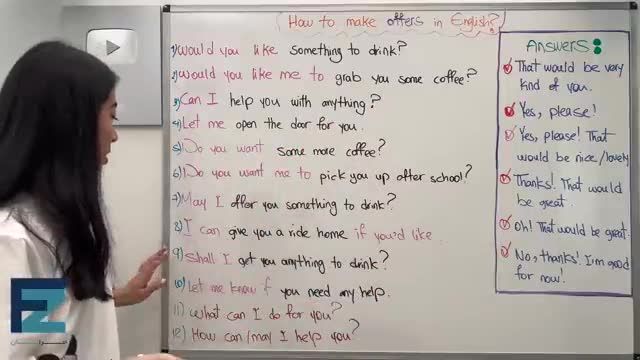 How to make offers in English?
1) Would you like something to drink?
2) Would you like me to grab you some coffee?
3) Can I help you with anything?
4) Let me open the door for you.
5) Do you want some more coffee?
6) Do you want me to pick you up after school?
7) May I offer you something to drink?
8) I can give you a ride home if you'd like.
9) Shall I get you anything to drink?
10) Let me know if you need any help.
11) What can I do for you?
12) How can/may I help you?
Answers:
That would be very
kind of you.
Yes, please!
Yes, please! That
would be nice/lovely
Thanks! That would
be great.
Oh! That would be great.
No, thanks! I'm good
for now!